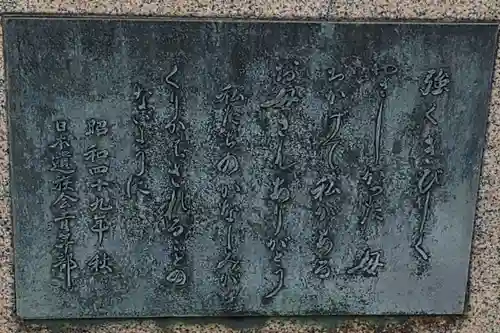 強くきびしく
やさしかった 母
おかげで 私がある
お母さんありがとう
私たちのかなしみが
くりかえされることの
ないように
昭和四十九年 秋
日本遺族会青年部